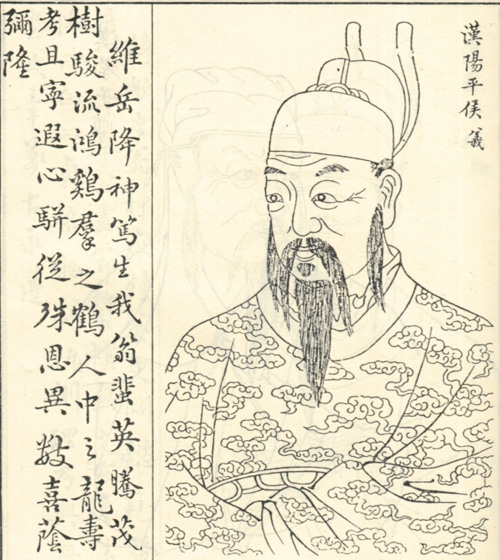 漢陽平侯羲
維岳降神篤生我翁蜚英騰茂
樹駿流鴻鷄羣之鶴人中之龍壽
考且寧遐心駢從殊恩異數喜蔭
彌隆